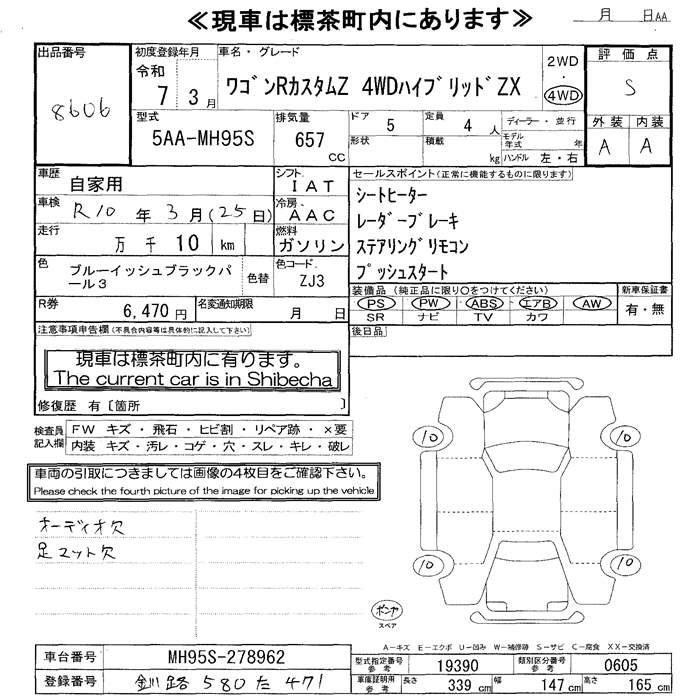 ≪現車は標茶町内にあります≫
月 日AA
出品番号 8606
初度登録年月 令和 7 3月
車名・グレード ワゴンRカスタムZ 4WDハイブリッドZX
2WD・4WD
評価点 S
型式 5AA-MH95S
排気量 657 CC
ドア 5
定員 4 人
形状
積載 kg
ディーラー・並行
モデル年式 年
ハンドル 左・右
外装 内装
A A
車歴 自家用
シフト IAT
セールスポイント(正常に機能するものに限ります)
シートヒーター
レーダーブレーキ
ステアリングリモコン
プッシュスタート
車検 R10年3月(25日)
冷房 AAC
走行 万千10 km
燃料 ガソリン
色 ブルーイッシュブラックパール3
色替
色コード ZJ3
装備品(純正品に限り○をつけてください)
PS PW ABS エアB AW
SR ナビ TV カワ
新車保証書 有・無
R券 6,470円
名変通知期限 月 日
後日品
注意事項申告欄(不具合内容等は具体的に記入して下さい)
現車は標茶町内に有ります。
The current car is in Shibecha
修復歴 有〔箇所 〕
検査員記入欄
FW キズ・飛石・ヒビ割・リペア跡・×要
内装 キズ・汚レ・コゲ・穴・スレ・キレ・破レ
車両の引取につきましては画像の4枚目をご確認下さい。
Please check the fourth picture of the image for picking up the vehicle
オーディオ欠
足マット欠
10 10
10 10
ポンプ
スペア
A-キズ E-エクボ U-凹み W-補修跡 S-サビ C-腐食 XX-交換済
車台番号 MH95S-278962
型式指定番号 参考 19390
類別区分番号 参考 0605
登録番号 釧路 580 た 471
車庫証明用 参考 長さ 339 cm 幅 147 cm 高さ 165 cm